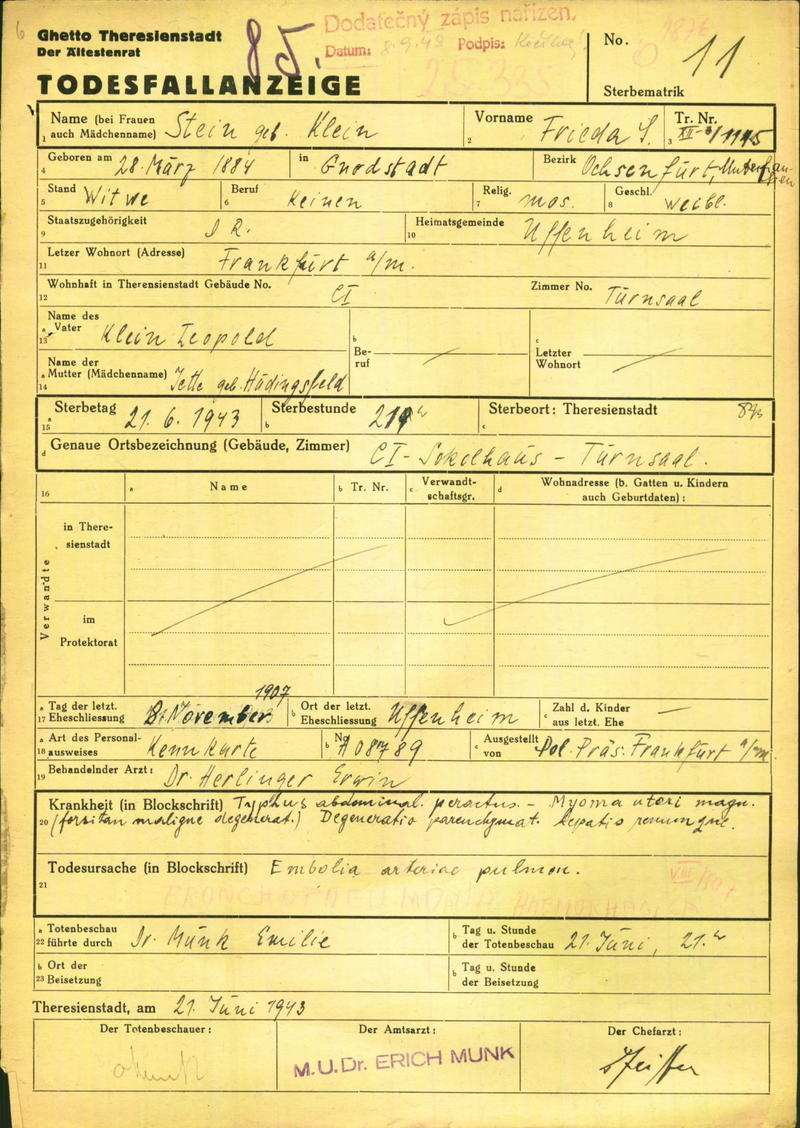 Ghetto Theresienstadt
Der Ältestenrat
TODESFALLANZEIGE
85.
Dodatečný zápis nařízen.
Datum: 8.9.48 Podpis:
25.335
No. 11
Sterbematrik
1 Name (bei Frauen auch Mädchenname) Stein geb. Klein
2 Vorname Frieda S.
3 Tr. Nr. XII-3/1145
4 Geboren am 28. März 1884 in Gnodstadt Bezirk Ochsenfurt, Unterfranken
5 Stand Witwe 6 Beruf keinen 7 Relig. mos. 8 Geschl. weibl.
9 Staatszugehörigkeit D R. 10 Heimatsgemeinde Uffenheim
11 Letzer Wohnort (Adresse) Frankfurt a/m.
12 Wohnhaft in Therensienstadt Gebäude No. CI Zimmer No. Turnsaal
a 13 Name des Vater Klein Leopold
b Beruf
c Letzter Wohnort
a 14 Name der Mutter (Mädchenname) Jette geb. Hüdingsfeld
a 15 Sterbetag 21. 6. 1943 b Sterbestunde c Sterbeort: Theresienstadt
d Genaue Ortsbezeichnung (Gebäude, Zimmer) CI - Sokolhaus - Turnsaal.
16 a Name b Tr. Nr. c Verwandtschaftsgr. d Wohnadresse (b. Gatten u. Kindern auch Geburtdaten):
Verwandte
in Theresienstadt
im Protektorat
a 17 Tag der letzt. Eheschliessung November 1907 b Ort der letzt. Eheschliessung Uffenheim c Zahl d. Kinder aus letzt. Ehe —
a 18 Art des Personalausweises Kennkarte b No A 08789 c Ausgestellt von Pol. Präs. Frankfurt a/m.
19 Behandelnder Arzt: Dr. Herlinger Erwin
20 Krankheit (in Blockschrift) Typhus abdominal. peractus. - Myoma uteri magn.
(forsitan maligne degenerat.) Degeneratio parenchymat. hepatis renumque.
21 Todesursache (in Blockschrift) Embolia arteriae pulmon.
a 22 Totenbeschau führte durch Dr. Munk Emilie b Tag u. Stunde der Totenbeschau 21. Juni, 21.h
b 23 Ort der Beisetzung b Tag u. Stunde der Beisetzung
Theresienstadt, am 21. Juni 1943
Der Totenbeschauer: Der Amtsarzt: Der Chefarzt:
M.U.Dr. ERICH MUNK